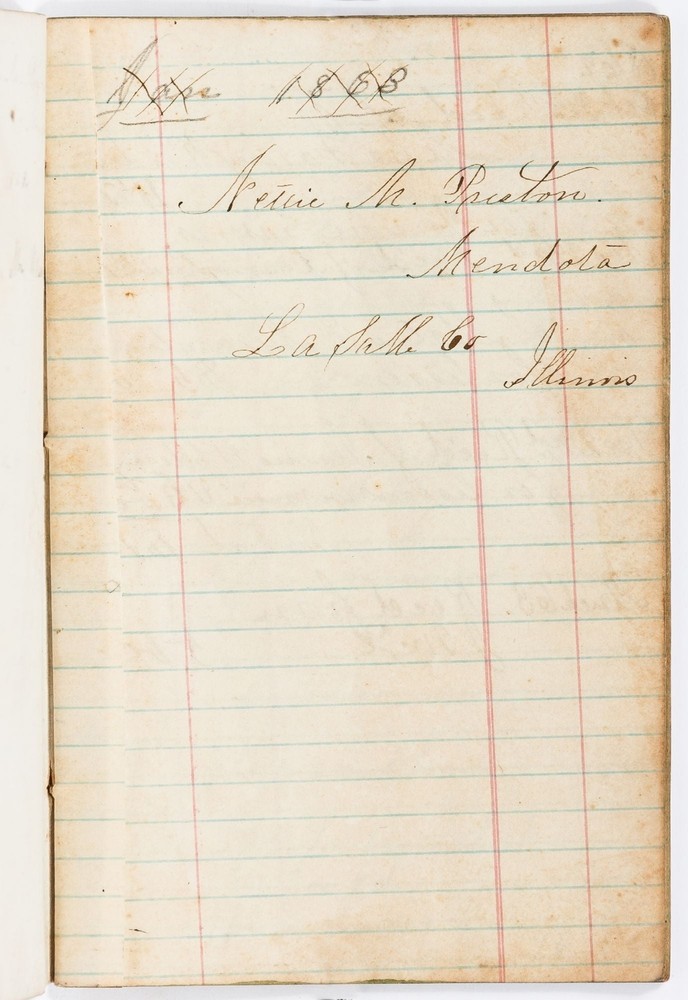 Jan 1863
Nettie M. Preston.
Mendota
La Salle Co
Illinois